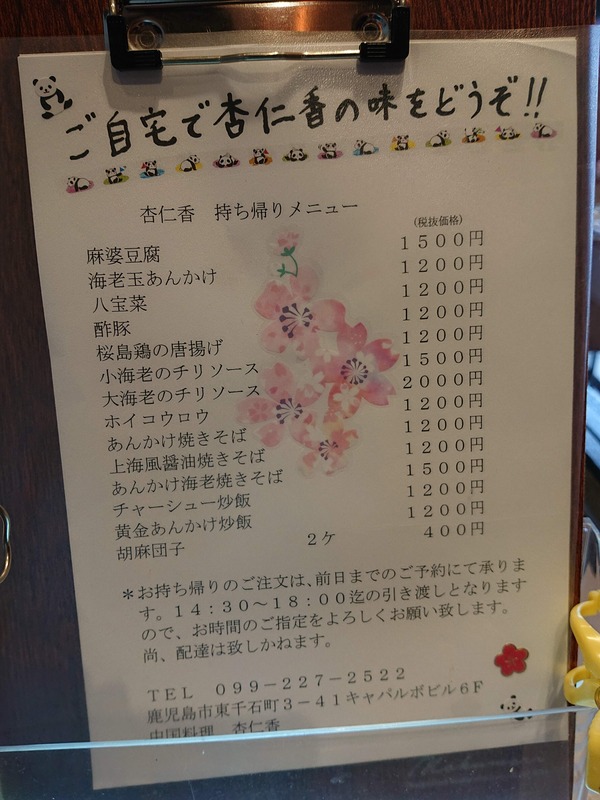 ご自宅で杏仁香の味をどうぞ!!
杏仁香 持ち帰りメニュー
(税抜価格)
麻婆豆腐 1500円
海老玉あんかけ 1200円
八宝菜 1200円
酢豚 1200円
桜島鶏の唐揚げ 1200円
小海老のチリソース 1500円
大海老のチリソース 2000円
ホイコウロウ 1200円
あんかけ焼きそば 1200円
上海風醤油焼きそば 1200円
あんかけ海老焼きそば 1500円
チャーシュー炒飯 1200円
黄金あんかけ炒飯 1200円
胡麻団子 2ケ 400円
*お持ち帰りのご注文は、前日までのご予約にて承りま
す。14:30~18:00迄の引き渡しとなります
ので、お時間のご指定をよろしくお願い致します。
尚、配達は致しかねます。
TEL 099-227-2522
鹿児島市東千石町3-41キャパルボビル6F
中国料理 杏仁香